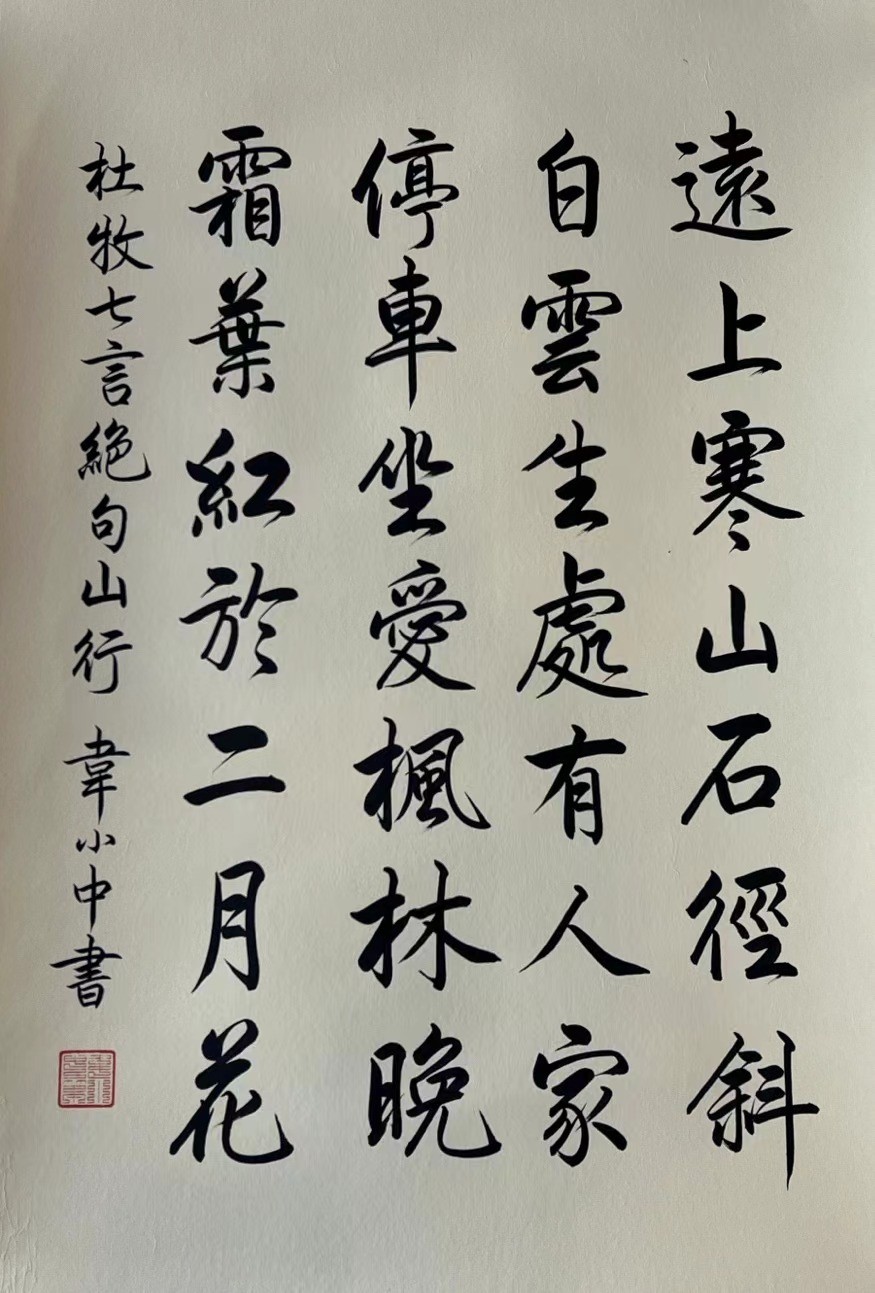 遠上寒山石徑斜
白雲生處有人家
停車坐愛楓林晚
霜葉紅於二月花
杜牧七言絕句山行 韋小中書